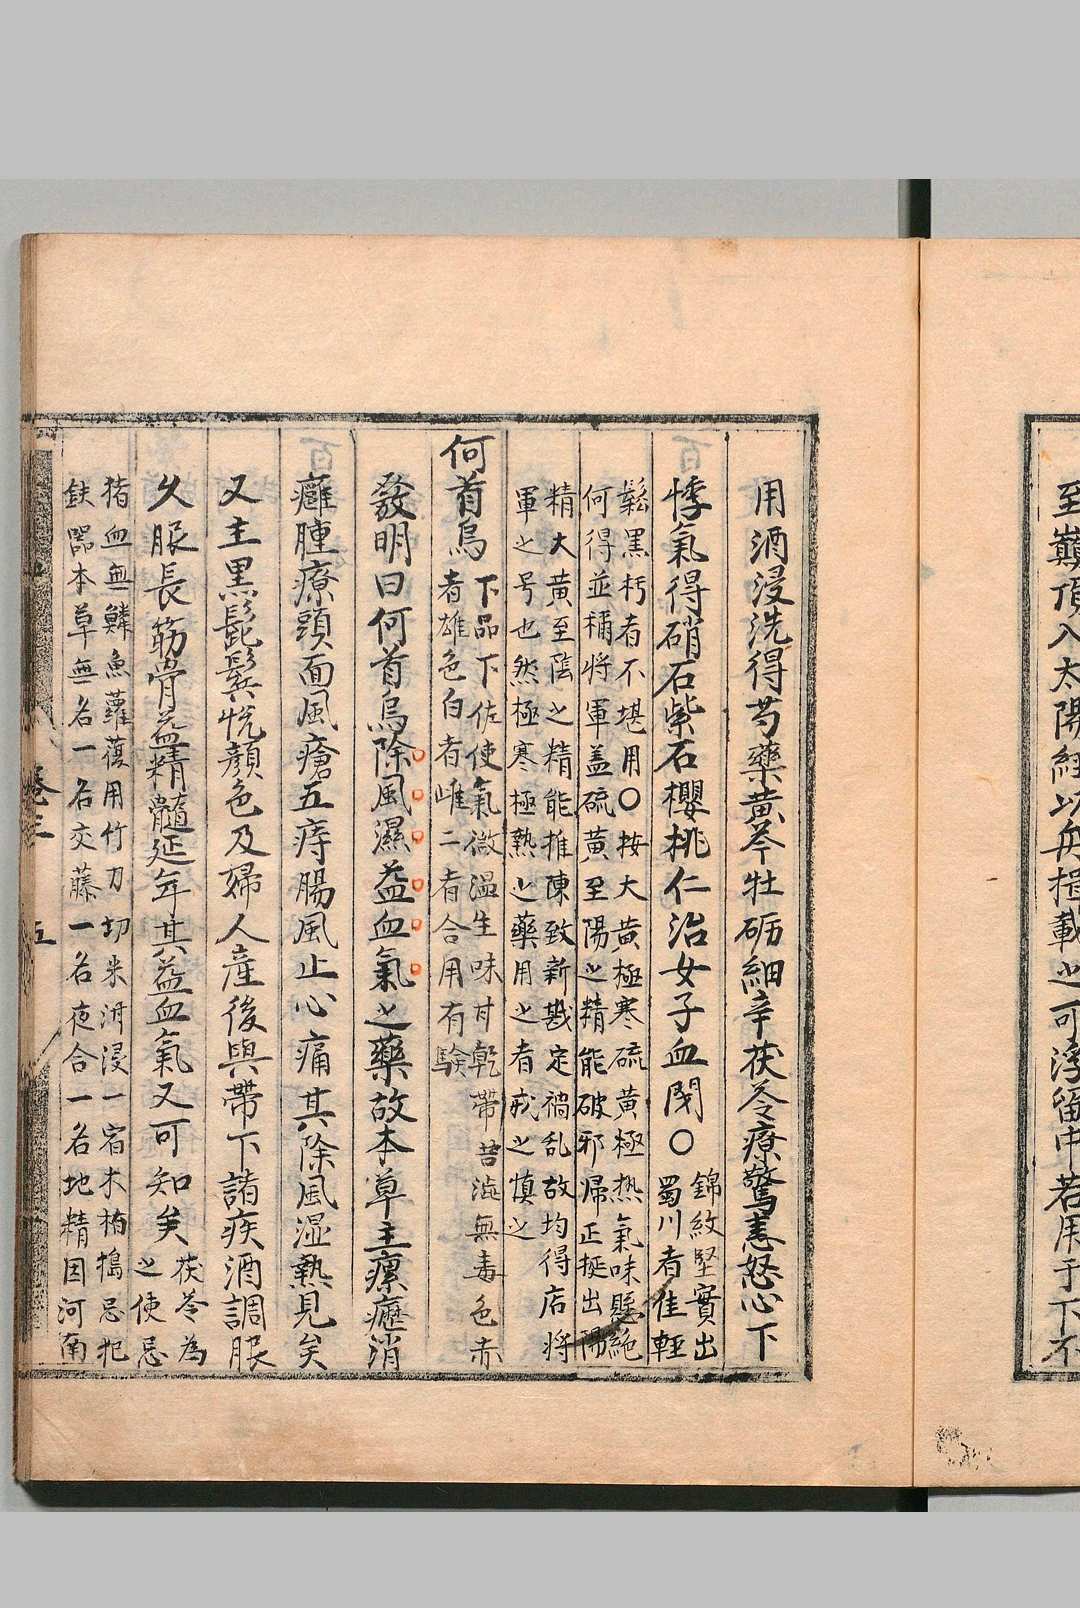 至巔頂入太陽經以舟揖載之可浮

用酒浸洗得芍藥黃芩牡礪細辛茯苓療驚恚怒心下
悸氣得硝石紫石櫻桃仁治女子血閉○
錦紋堅實出
蜀川者佳輕
鬆黑朽者不堪用○按大黃極寒硫黃極熱氣味懸絕
何得並稱將軍盖硫黃至陽之精能破邪歸正挺出陽
精大黃至陰之精能推陳致新戡定禍乱故均得店將
軍之号也然極寒極熟之藥用之者戒之慎之
何首烏
下品下佐使氣微溫生味甘乾帶苦澁無毒色赤
者雄色白者雌二者合用有驗
發明曰何首烏除風濕益血氣之藥故本草主瘰癧消
癰腫療頭面風瘡五痔腸風止心痛其除風湿熱見矣
又主黑髭鬂悅顏色及婦人產後與帶下諸疾酒調服
久服長筋骨益精髓延年其益血氣又可知矣
茯苓為
之使忌
猪血血鱗魚蘿蔔用竹刀切米泔浸一宿木桕搗忌犯
鉄器本草無名一名交藤一名夜合一名地精因河南
卷三
五